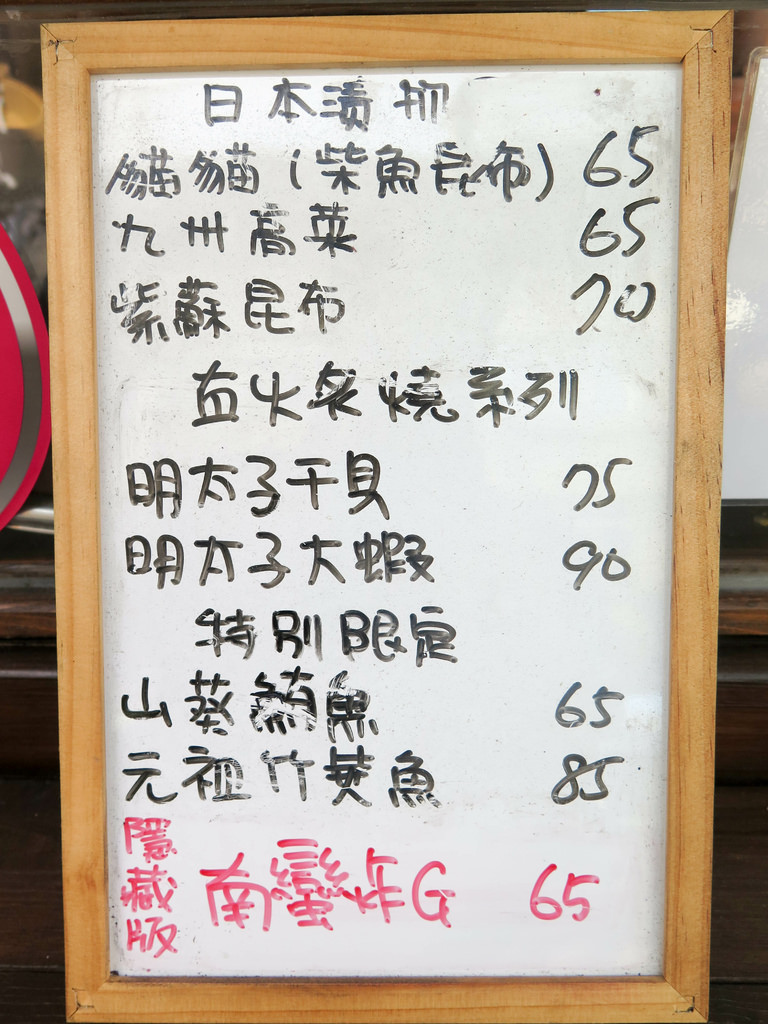 日本漬物
貓貓(柴魚昆布) 65
九州高菜 65
紫蘇昆布 70
直火炙燒系列
明太子干貝 75
明太子大蝦 90
特別限定
山葵鮪魚 65
元祖竹筴魚 85
隱藏版 南蠻炸G 65